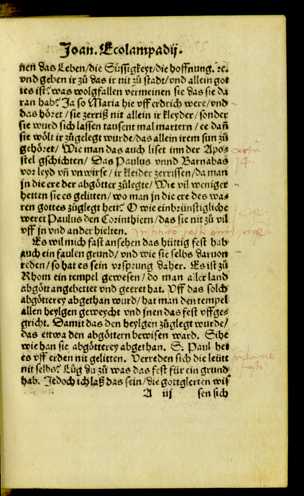 Joan. Ecolampadij.
nen das Leben/die Süssigkeyt/die hoffnung. ꝛc.
vnd geben ir zů das ir nit zů stadt/vnd allein got
tes ist. was wolgfallen vermeinen sie das sie da
ran hab? Ja so Maria hie vff erdrich were/vnd
das höret/sie zerriß nit allein ir kleyder/sonder
sie würd sich lassen tausent mal martern/ee daß
sie wölt ir zůgelegt würde das allein irem sun zů
gehöret/Wie man das auch liset in der Apos
stel gschichten/Das Paulus vnnd Barnabas
vor leyd vñ vnwirse/ir kleider zerrissen/da man
in die ere der abgötter zůlegte/Wie vil weniger
hetten sie es gelitten/wo man in die ere des wa
ren gottes zůglegt het? O wie einbrünstigliche
weret Paulus den Corinthiern/das sie nit zů vil
vff jn vnd ander hielten.
Es wil mich fast ansehen das hüttig fest hab
auch ein faulen grund/vnd wie sie selbs daruon
reden/so hat es sein vrsprung daher. Es ist zů
Rhom ein tempel gewesen/do man aller land
abgött angebettet vnd geeret hat. Vff das solch
abgötterey abgethan wurd/hat man den tempel
allen heylgen geweycht vnd jnen das fest vffge-
gericht. Damit das den heylgen zůglegt wurde/
das ettwa den abgöttern bewisen ward. Sihe
wie han sie abgötterey abgethan. S. Paul het
es vff erden nit gelitten. Verreden sich die leütt
nit selbs? Lůg du zů was das fest für ein grund
hab. Jedoch ich laß das sein/die gottglerten wis
A iij sen sich